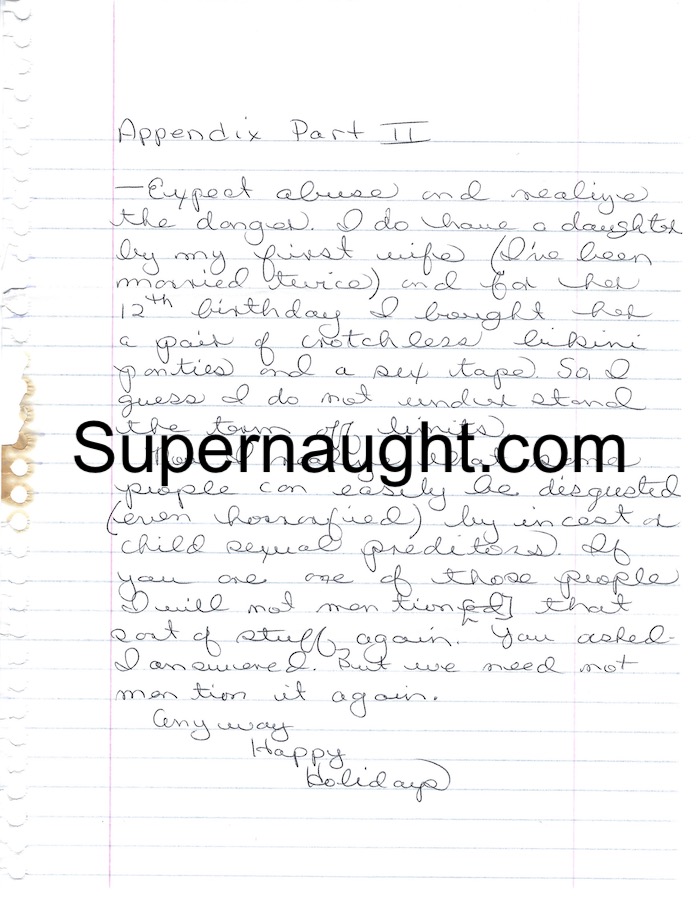 Appendix Part II
—Expect abuse and realize
the danger. I do have a daughter
by my first wife (I've been
married twice) and for her
12th birthday I bought her
a pair of crotchless bikini
panties and a sex tape. So, I
guess I do not under stand
the term off limits
Supernaught.com
people can easily be disgusted
(even horrorfied) by incest or
child sexual preditors. If
you are one of those people
I will not mention[ed] that
sort of stuff again. You asked-
I answered. But we need not
mention it again.
Anyway
Happy
Holidays